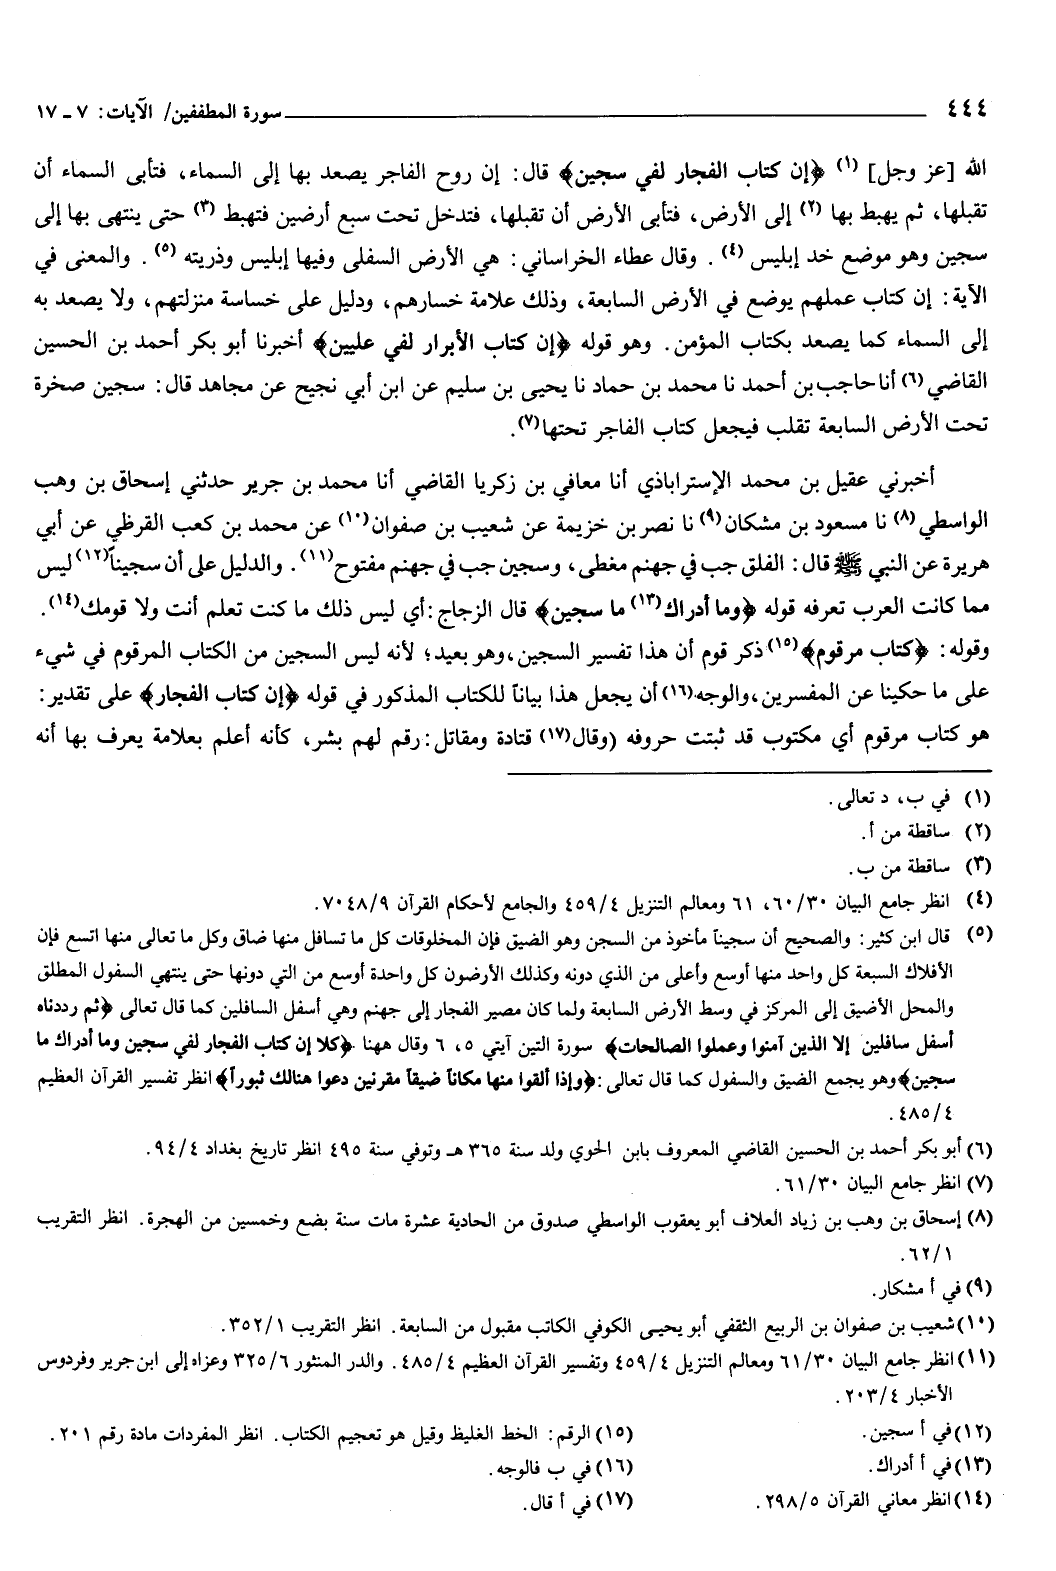 ٤٤٤ ــــــ سورة المطففين/ الآيات: ٧ ـ ١٧
الله [عز وجل] (١) ﴿إن كتاب الفجار لفي سجين﴾ قال: إن روح الفاجر يصعد بها إلى السماء، فتأبى السماء أن
تقبلها، ثم يهبط بها (٢) إلى الأرض، فتأبى الأرض أن تقبلها، فتدخل تحت سبع أرضين فتهبط (٣) حتى ينتهى بها إلى
سجين وهو موضع خد إبليس (٤) . وقال عطاء الخراساني: هي الأرض السفلى وفيها إبليس وذريته (٥) . والمعنى في
الآية: إن كتاب عملهم يوضع في الأرض السابعة، وذلك علامة خسارهم، ودليل على خساسة منزلتهم، ولا يصعد به
إلى السماء كما يصعد بكتاب المؤمن. وهو قوله ﴿إن كتاب الأبرار لفي عليين﴾ أخبرنا أبو بكر أحمد بن الحسين
القاضي (٦) أنا حاجب بن أحمد نا محمد بن حماد نا يحيى بن سليم عن ابن أبي نجيح عن مجاهد قال: سجين صخرة
تحت الأرض السابعة تقلب فيجعل كتاب الفاجر تحتها(٧).
أخبرني عقيل بن محمد الإستراباذي أنا معافي بن زكريا القاضي أنا محمد بن جرير حدثني إسحاق بن وهب
الواسطي (٨) نا مسعود بن مشكان(٩) نا نصر بن خزيمة عن شعيب بن صفوان(١٠) عن محمد بن كعب القرظي عن أبي
هريرة عن النبي ﷺ قال: الفلق جب في جهنم مغطى، وسجين جب في جهنم مفتوح(١١). والدليل على أن سجيناً(١٢) ليس
مما كانت العرب تعرفه قوله ﴿وما أدراك(١٣) ما سجين﴾ قال الزجاج: أي ليس ذلك ما كنت تعلم أنت ولا قومك(١٤).
وقوله: ﴿كتاب مرقوم﴾(١٥) ذكر قوم أن هذا تفسير السجين، وهو بعيد؛ لأنه ليس السجين من الكتاب المرقوم في شيء
على ما حكينا عن المفسرين، والوجه(١٦) أن يجعل هذا بياناً للكتاب المذكور في قوله ﴿إن كتاب الفجار﴾ على تقدير:
هو كتاب مرقوم أي مكتوب قد ثبتت حروفه (وقال(١٧) قتادة ومقاتل: رقم لهم بشر، كأنه أعلم بعلامة يعرف بها أنه
(١) في ب، د تعالى.
(٢) ساقطة من أ.
(٣) ساقطة من ب.
(٤) انظر جامع البيان ٦٠/٣٠، ٦١ ومعالم التنزيل ٤٥٩/٤ والجامع لأحكام القرآن ٧٠٤٨/٩.
(٥) قال ابن كثير: والصحيح أن سجيناً مأخوذ من السجن وهو الضيق فإن المخلوقات كل ما تسافل منها ضاق وكل ما تعالى منها اتسع فإن
الأفلاك السبعة كل واحد منها أوسع وأعلى من الذي دونه وكذلك الأرضون كل واحدة أوسع من التي دونها حتى ينتهي السفول المطلق
والمحل الأضيق إلى المركز في وسط الأرض السابعة ولما كان مصير الفجار إلى جهنم وهي أسفل السافلين كما قال تعالى ﴿ثم رددناه
أسفل سافلين إلا الذين آمنوا وعملوا الصالحات﴾ سورة التين آيتي ٥، ٦ وقال ههنا ﴿كلا إن كتاب الفجار لفي سجين وما أدراك ما
سجين﴾ وهو يجمع الضيق والسفول كما قال تعالى: ﴿وإذا ألقوا منها مكاناً ضيقاً مقرنين دعوا هنالك ثبوراً﴾ انظر تفسير القرآن العظيم
٤٨٥/٤.
(٦) أبو بكر أحمد بن الحسين القاضي المعروف بابن الحوي ولد سنة ٣٦٥ هـ وتوفي سنة ٤٩٥ انظر تاريخ بغداد ٩٤/٤.
(٧) انظر جامع البيان ٦١/٣٠.
(٨) إسحاق بن وهب بن زياد العلاف أبو يعقوب الواسطي صدوق من الحادية عشرة مات سنة بضع وخمسين من الهجرة. انظر التقريب
٦٢/١.
(٩) في أ مشكار.
(١٠) شعيب بن صفوان بن الربيع الثقفي أبو يحيى الكوفي الكاتب مقبول من السابعة. انظر التقريب ٣٥٢/١.
(١١) انظر جامع البيان ٦١/٣٠ ومعالم التنزيل ٤٥٩/٤ وتفسير القرآن العظيم ٤٨٥/٤. والدر المنثور ٣٢٥/٦ وعزاه إلى ابن جرير وفردوس
الأخبار ٢٠٣/٤.
(١٢) في أ سجين.
(١٣) في أ أدراك.
(١٤) انظر معاني القرآن ٢٩٨/٥.
(١٥) الرقم: الخط الغليظ وقيل هو تعجيم الكتاب. انظر المفردات مادة رقم ٢٠١.
(١٦) في ب فالوجه.
(١٧) في أ قال.